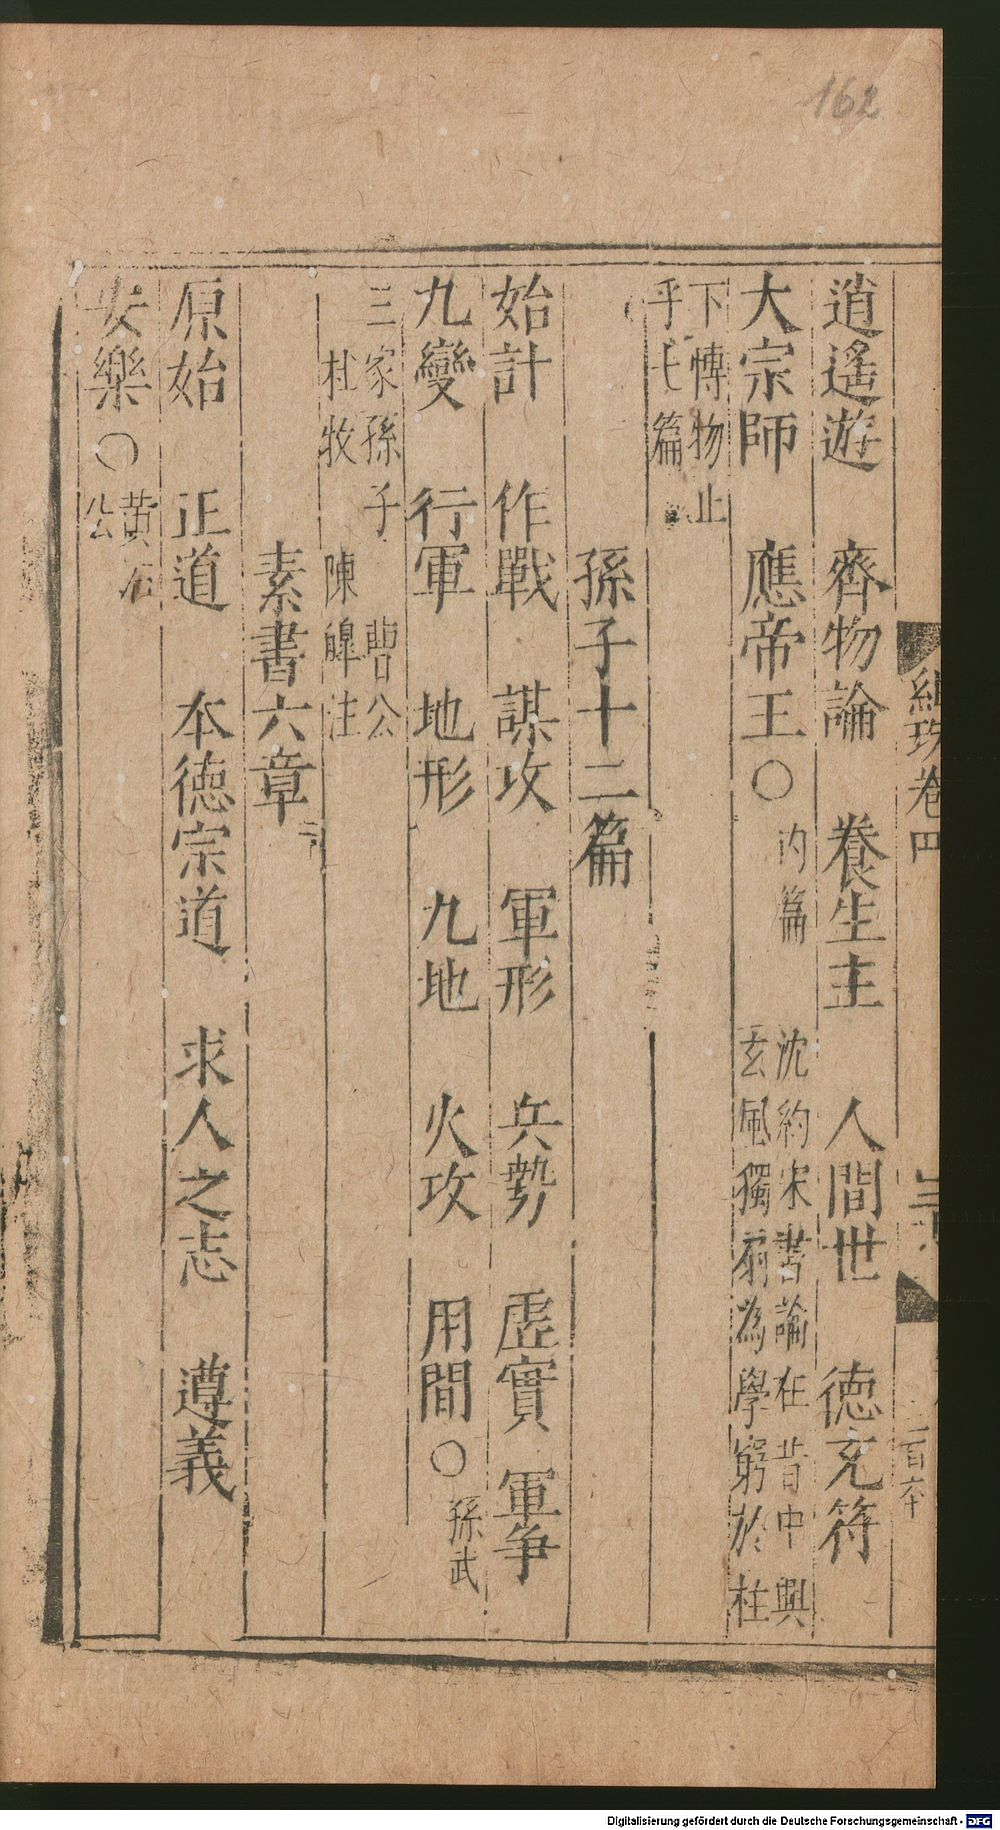 162
組珠卷四
逍遙遊 齊物論 養生主 人間世 德充符
大宗師 應帝王○內篇
沈約宋書論在昔中興
玄風獨扇為學窮於柱
下博物止
乎七篇
孫子十二篇
始計 作戰 謀攻 軍形 兵勢 虛實 軍爭
九變 行軍 地形 九地 火攻 用間○孫武
三家孫子 曹公
杜牧 陳皥注
素書六章
原始 正道 本德宗道 求人之志 遵義
安樂○黃石
公
Digitalisierung gefördert durch die Deutsche Forschungsgemeinschaft - DFG